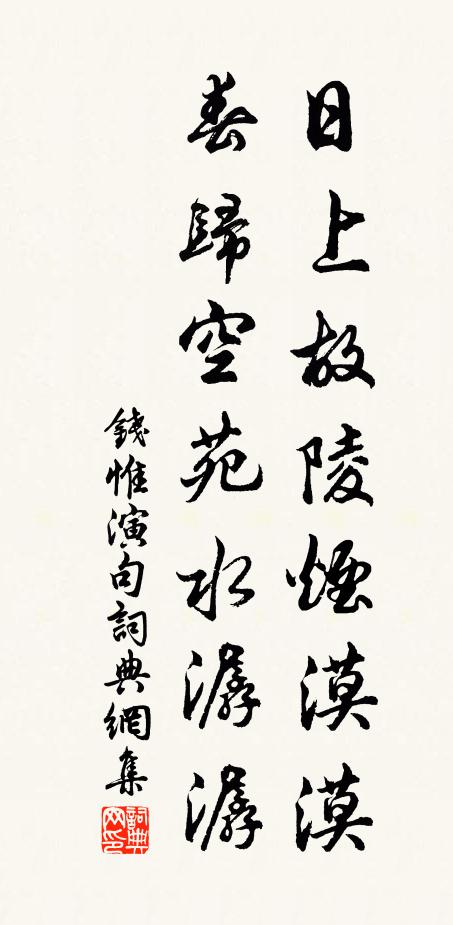 日上故陵煙漠漠
春歸空苑水潺潺
錢惟演句詞典網集
詞典網印